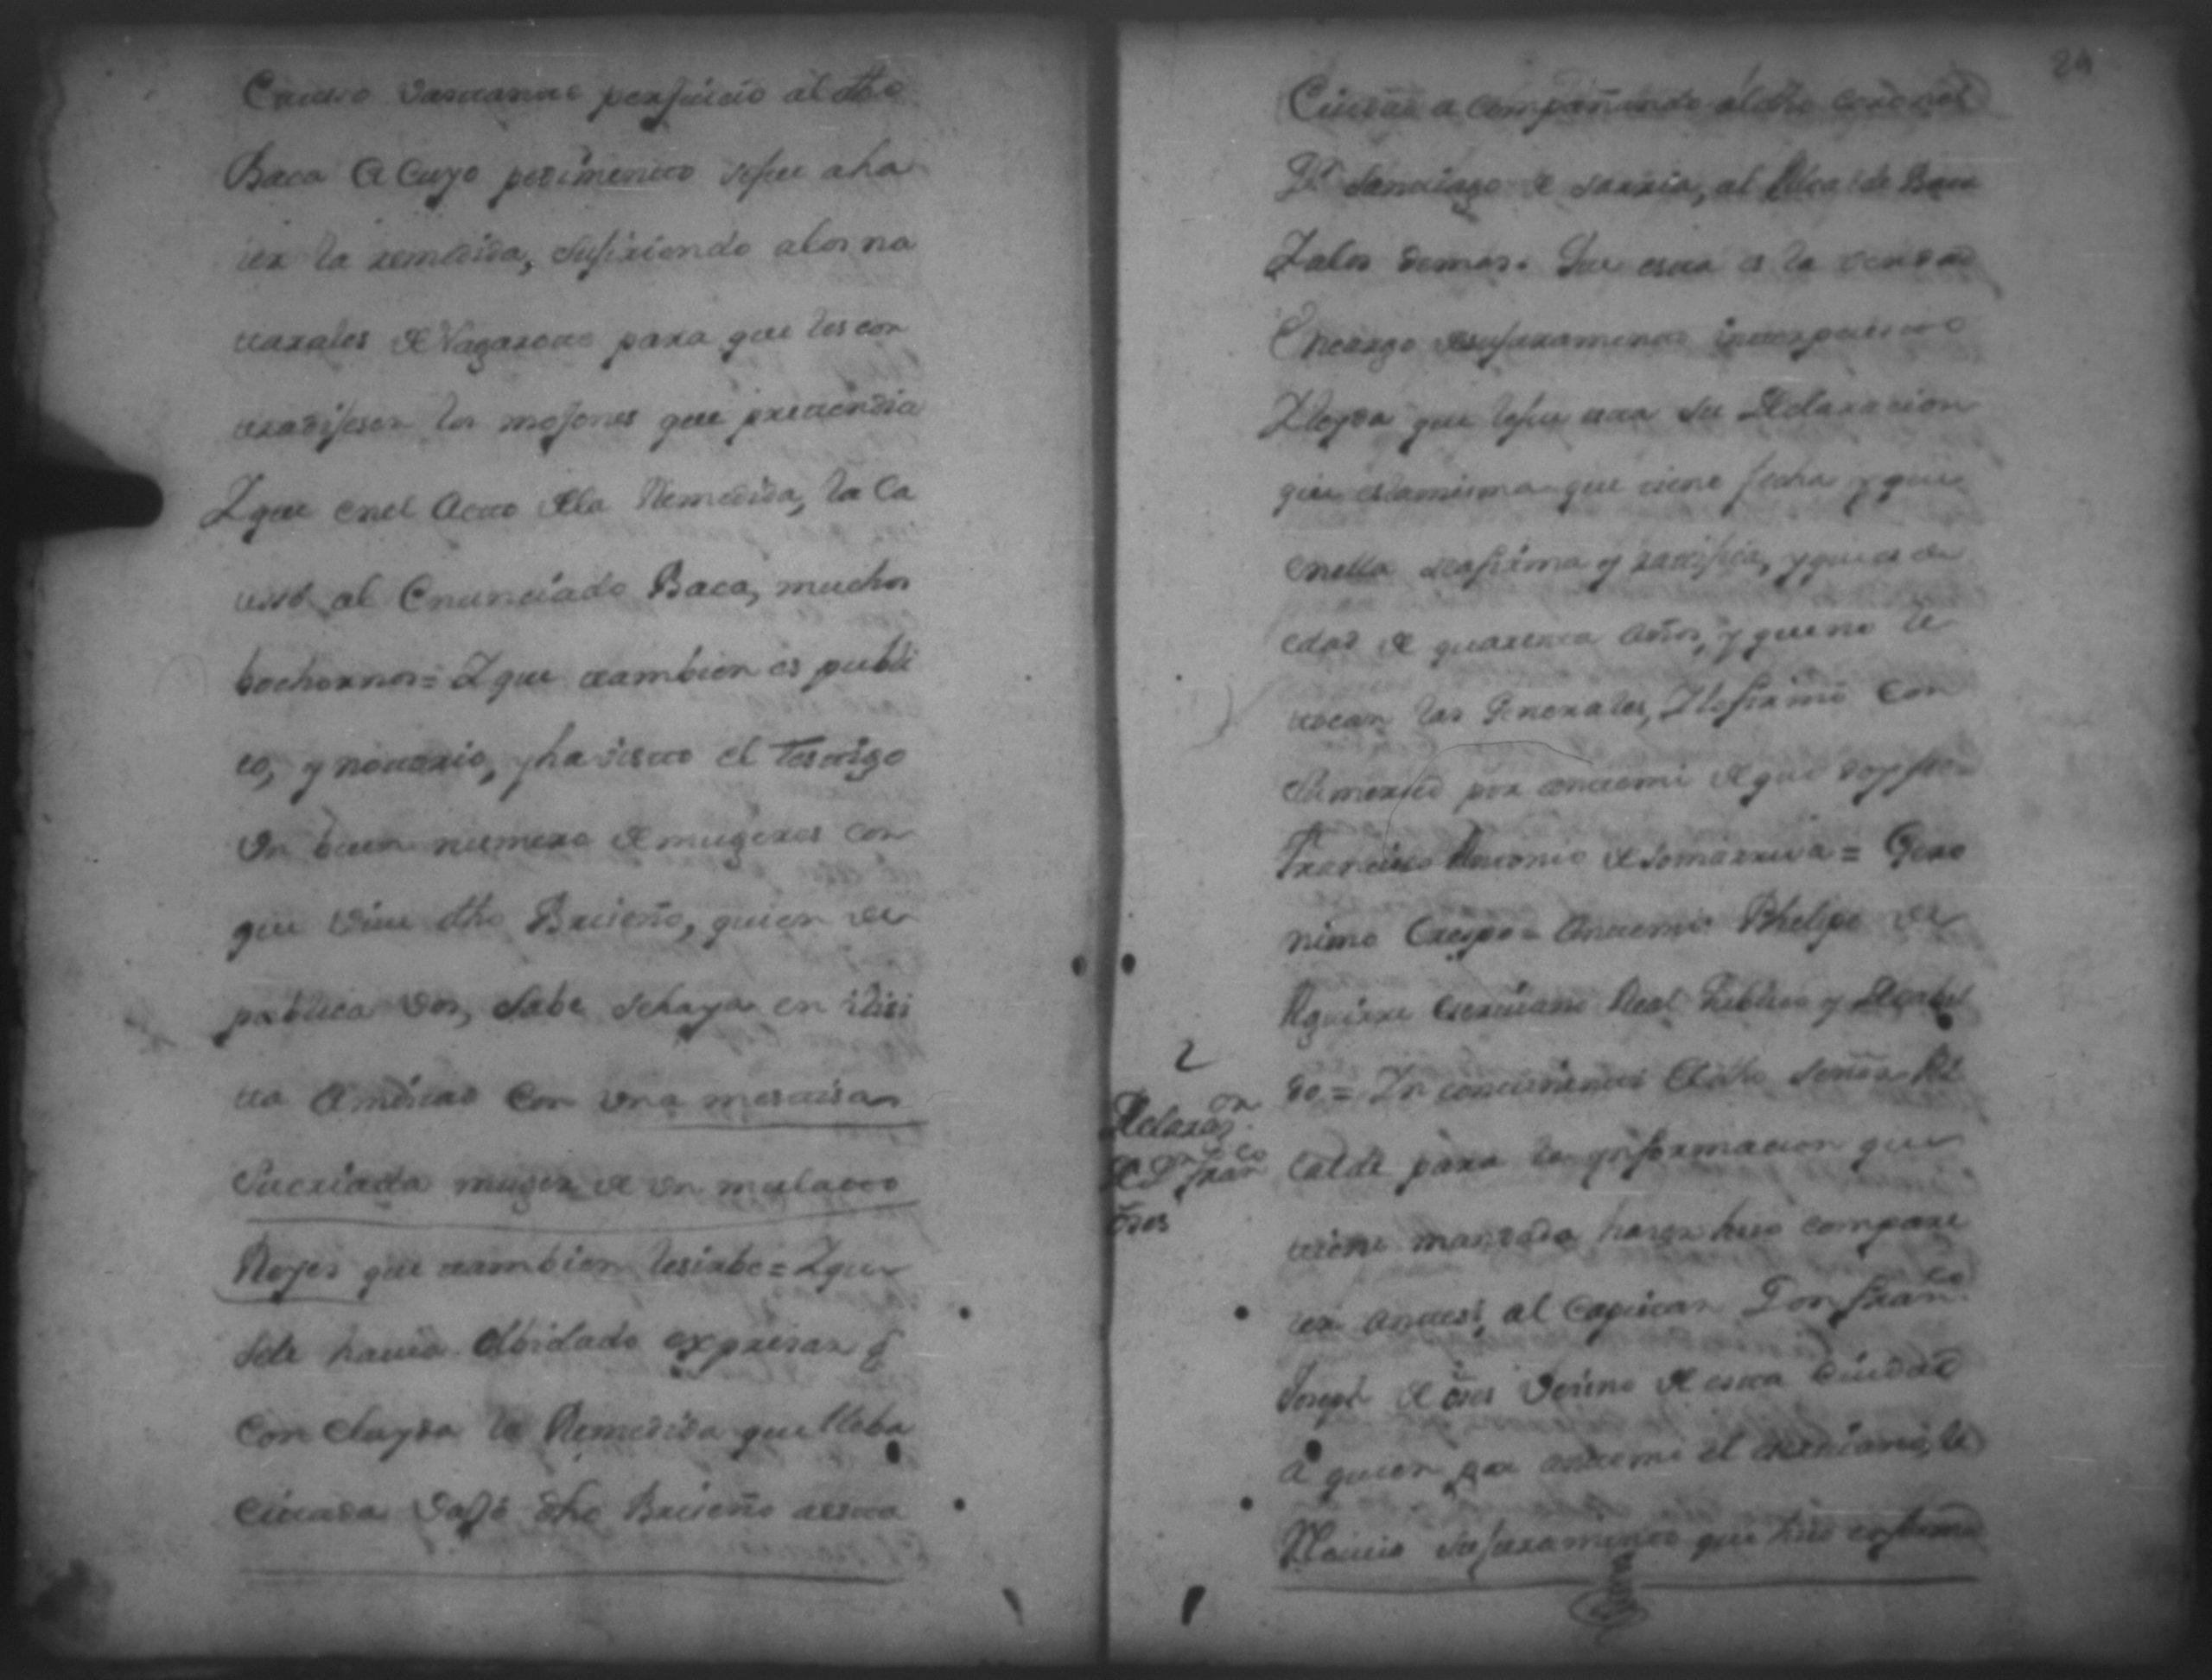 bastante perjuicio al dho
Baca a cuyo pedimento se fue aha
ser la remedida, sufiriendo alos na
turales de Nagarote para que les con
tradijesen los mojones que pretendia
Y que en el acto dela Remedida, la ca
uso al enunciado Baca, muchos
bochornos = Y que tambien es publi
co, y notorio, y ha visto el testigo
un buen numero de mugeres con
que vive dho Briseño, quien de
publica vos, sabe sehaya en ilisi
ta amistad con una mestisa
su criada muger de un mulato
Reyes que tambien lesirbe = Y que
sele havia olbidado expresar q
concluyda la Remedida que lleba
citada bajó dho Briseño aesta
24
Ciudad acompañando al dho coronel
Dn Santiago de sarria, al Alcalde Baca
Y alos demas. Que esta es la verdad
encargo desu juramento interpuesto
Y leyda que lefue esta su Declaracion
que es la misma que tiene fecha y que
en ella seafirma y ratifica, y que es de
edad de quarenta años, y que no le
tocan las Generales, Y lo firmó con
su merced por antemi de que doy fee
Francisco Antonio de somarriva = Gero
nimo Crespo = Antemi Phelipe de
Aguirre Escrivano Real Publico y Decabil
do = En continenti el dho señor Al
calde para la ynformacion que
tiene mandado haser hiso compare
ser antesi, al Capitan Don Franco
Joseph de Ores vesino de esta ciudad
a quien por antemi el escrivano, le
Recivio su juramento que hiso enforma
2
Declaraon
de Dn Franco
Ores